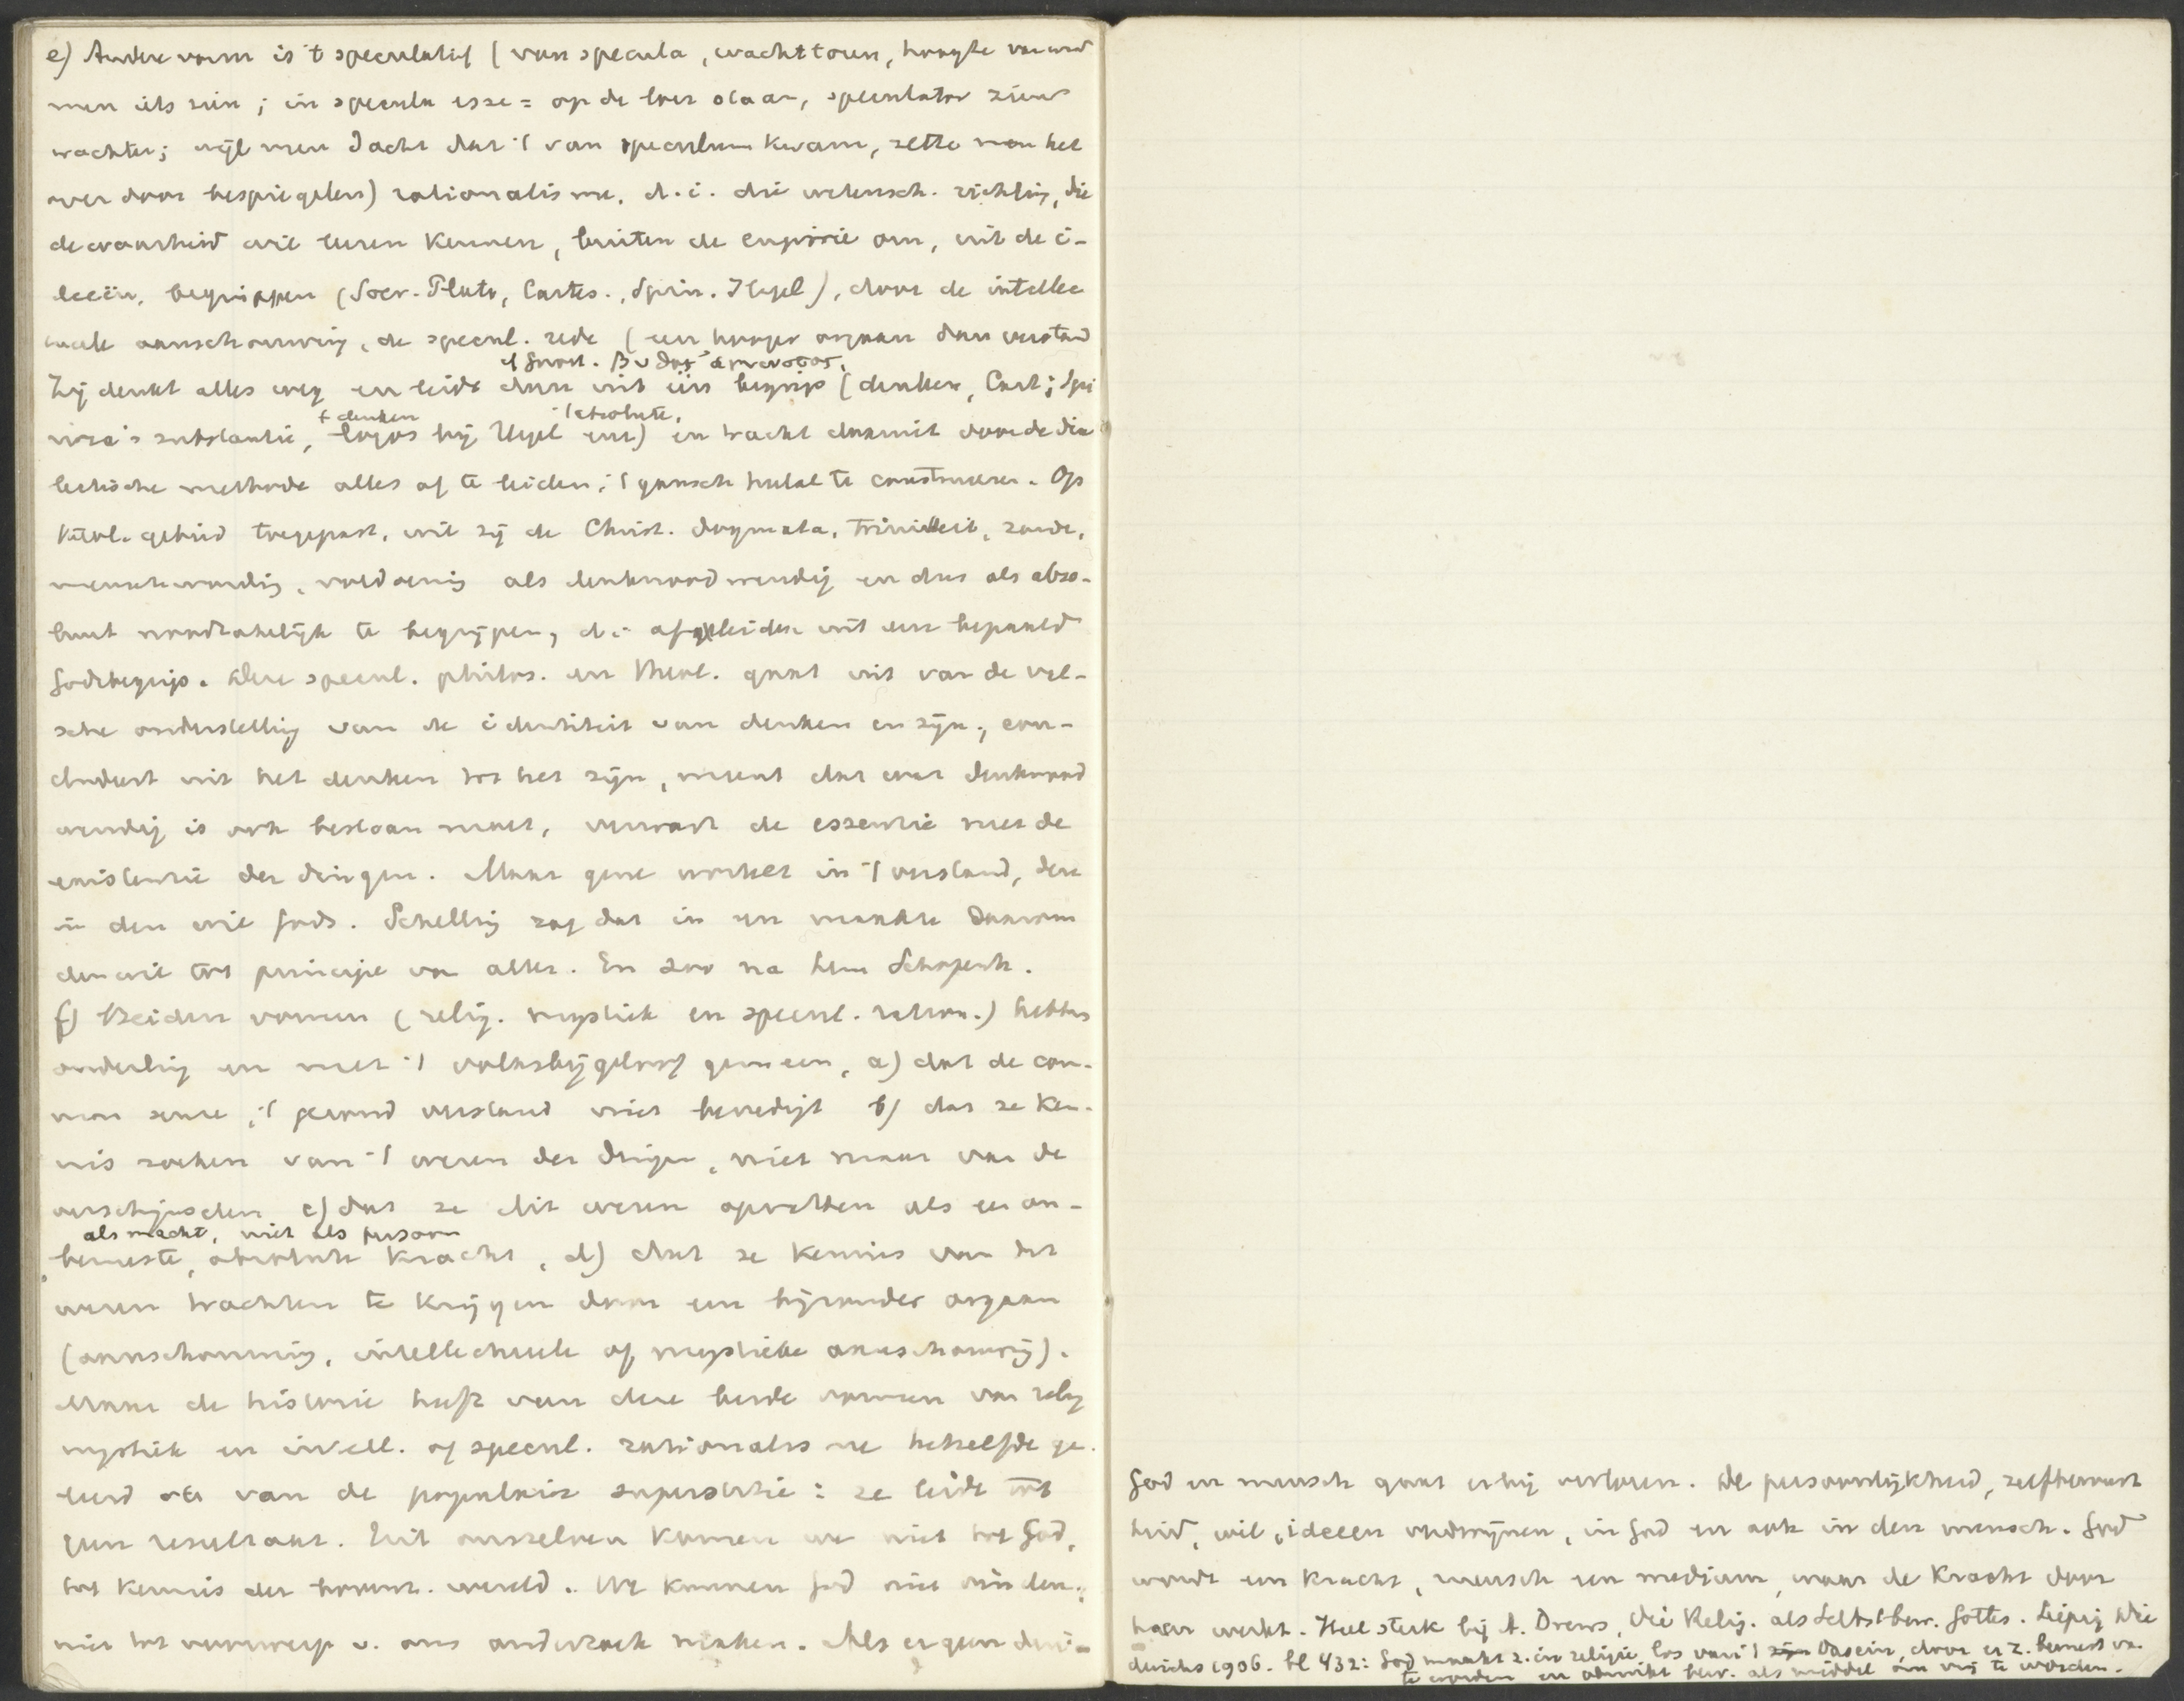 e) Andere vorm is 't speculatief (van specula, wachttoren, hoogte vanwaar
men iets zien; in specula esse = op de loer staan, speculator ziener
wachter; wijl men dacht dat 't van speculum kwam, zette men het
over door bespiegelen) rationalisme, d.i. die wetensch. richting, die
de waarheid wil leeren kennen, buiten de empirie om, uit de i-
deeën, begrippen (Socr. Plato, Cartes., Spin. Hegel), door de intellec
tueele aanschouwing, de specul. rede (een hooger orgaan dan verstand
cf Gnost.
Zij denkt alles weg en leidt dan uit één begrip (denken, Cart; Spi
+ denken 't absolute,
noza's substantie, logos bij Hegel enz) en tracht daaruit door de dia
lectische methode alles af te leiden, 't gansch heelal te construeeren. Op
theol. gebied toegepast, wil zij de Christ. dogmata, triniteit, zonde,
menschwording, voldoening als denknoodwendig en dus als abso-
luut noodzakelijk te begrijpen, d.i. afgeleiden uit een bepaald
Godsbegrip. Deze specul. philos. en theol. gaat uit van de val-
sche onderstelling van de identiteit van denken en zijn, con-
cludeert uit het denken tot het zijn, meent dat wat denknood
wendig is ook bestaan moet, verwart de essentie met de
existentie der dingen. Maar gene wortelt in 't verstand, deze
in den wil Gods. Schelling zag dat in en maakte daarom
den wil tot principe van alles. En zoo na hem Schopenh.
f) Beiden vormen (relig. mystiek en specul. ration.) hebben
onderling en met 't volksbijgeloof gemeen, a) dat de com-
mon sense, 't gezond verstand niet bevredigt b) dat ze ken-
nis zoeken van 't wezen der dingen, niet maar van de
verschijnselen c) dat ze dit wezen opvatten als een on-
als macht, niet als persoon
bewuste, absolute kracht, d) dat ze kennis van dit
wezen trachten te krijgen door een bijzonder orgaan
(aanschouwing, intellectueele of mystieke aanschouwing).
Maar de historie heeft van deze beide vormen van relig
mystiek en intell. of specul. rationalisme hetzelfde ge-
leerd als van de populaire superstitie: ze leidt tot
geen resultaat. Uit onszelven komen we niet tot God,
tot kennis der bovenz. wereld. We kunnen God niet vinden,
niet tot voorwerp v. ons onderzoek maken. Als er geen
God en mensch gaat erbij verloren. De persoonlijkheid, zelfbewust
heid, wil, ideeen verdwijnen, in God en ook in den mensch. God
wordt een kracht, mensch een medium, waar de kracht door
haar werkt. Heel sterk bij A. Drews, Die Relig. als Selbstbew. Gottes. Leipzig Die
derichs 1906. bl 432: God maakt z. in religie los van 't Dasein, door er z. bewust van
te worden en bew. als middel om vrij te worden.